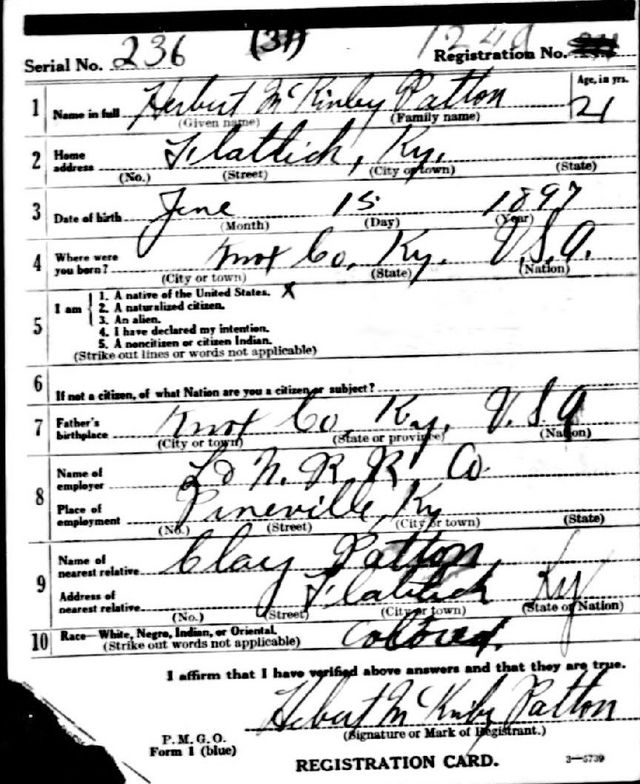 Serial No. 236 (31) Registration No. 1240
1 Name in full Herbert McKinley Patton Age, in yrs. 21
(Given name) (Family name)
2 Home address Flatlick, Ky,
(No.) (Street) (City or town) (State)
3 Date of birth June 15 1897
(Month) (Day) (Year)
4 Where were you born? Knox Co, Ky. U.S.A.
(City or town) (State) (Nation)
5 I am
1. A native of the United States. x
2. A naturalized citizen.
3. An alien.
4. I have declared my intention.
5. A noncitizen or citizen Indian.
(Strike out lines or words not applicable)
6 If not a citizen, of what Nation are you a citizen or subject?
7 Father's birthplace Knox Co, Ky, U.S.A
(City or town) (State or province) (Nation)
8 Name of employer L & N. R R. Co
Place of employment Pineville, Ky
(No.) (Street) (City or town) (State)
9 Name of nearest relative Clay Patton
Address of nearest relative Flatlick Ky
(No.) (Street) (City or town) (State or Nation)
10 Race—White, Negro, Indian, or Oriental. Colored.
(Strike out words not applicable)
I affirm that I have verified above answers and that they are true.
Hebert McKinley Patton
(Signature or Mark of Registrant.)
P.M.G.O.
Form 1 (blue)
REGISTRATION CARD. 3—5739